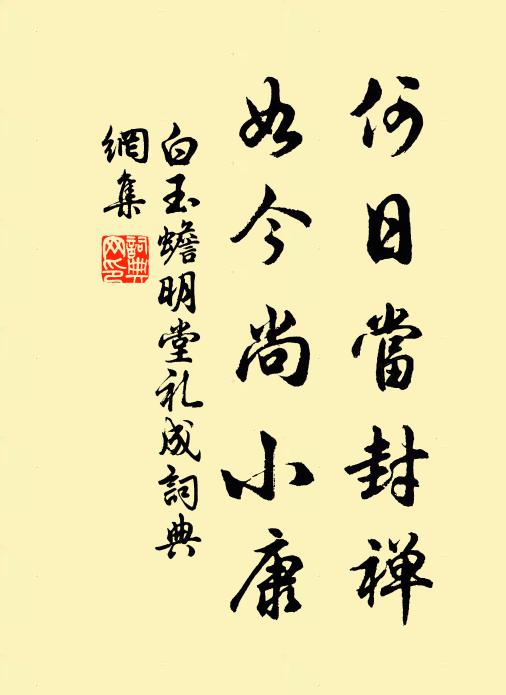 何日當封禅
如今尚小康
白玉蟾明堂礼成詞典
網集
詞典網印